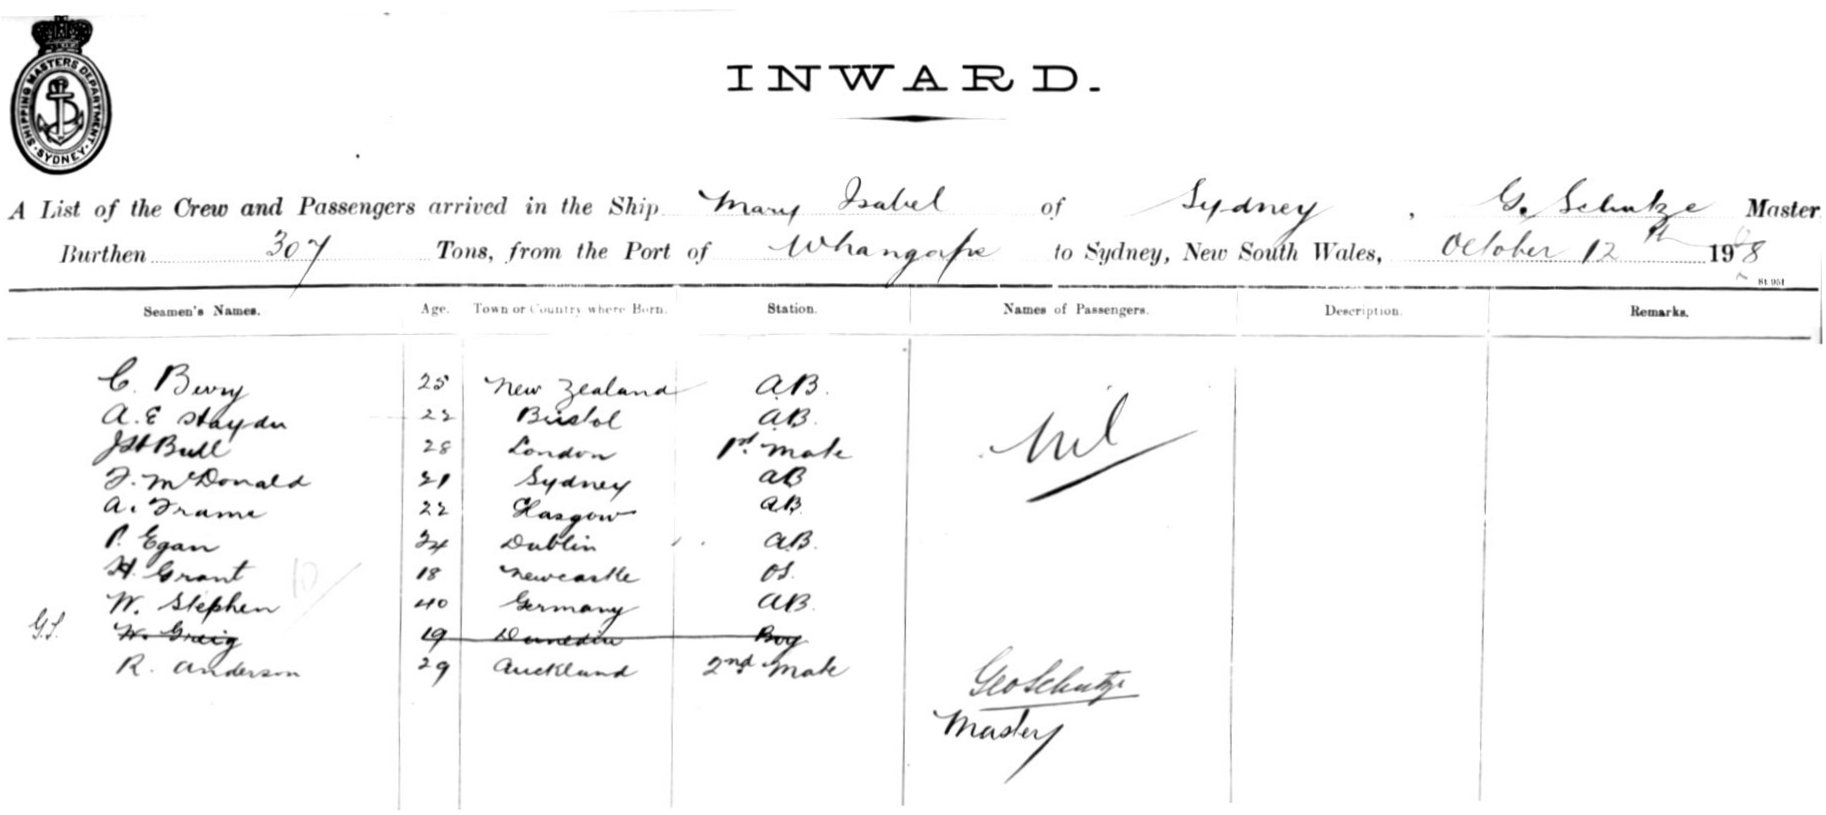 SHIPPING MASTERS DEPARTMENT
SYDNEY
INWARD.
A List of the Crew and Passengers arrived in the Ship Mary Isabel of Sydney, G. Schutze Master
Burthen 307 Tons, from the Port of Whangape to Sydney, New South Wales, October 12th 1908
Seamen's Names. Age. Town or Country where Born. Station. Names of Passengers. Description. Remarks.
C. Berry 25 New Zealand A.B.
A. E 22 Bristol A.B. Nil
J H Bull 28 London 1st Mate
J. McDonald 21 Sydney AB
A. Frame 22 Glasgow A.B.
P. Egan 24 Dublin A.B.
H. Grant 18 Newcastle OS. 10
W. Stephen 40 Germany A.B.
G.S. W. Greig 19 Dunedin Boy
R. Anderson 29 Auckland 2nd Mate
Geo Schutze
Master